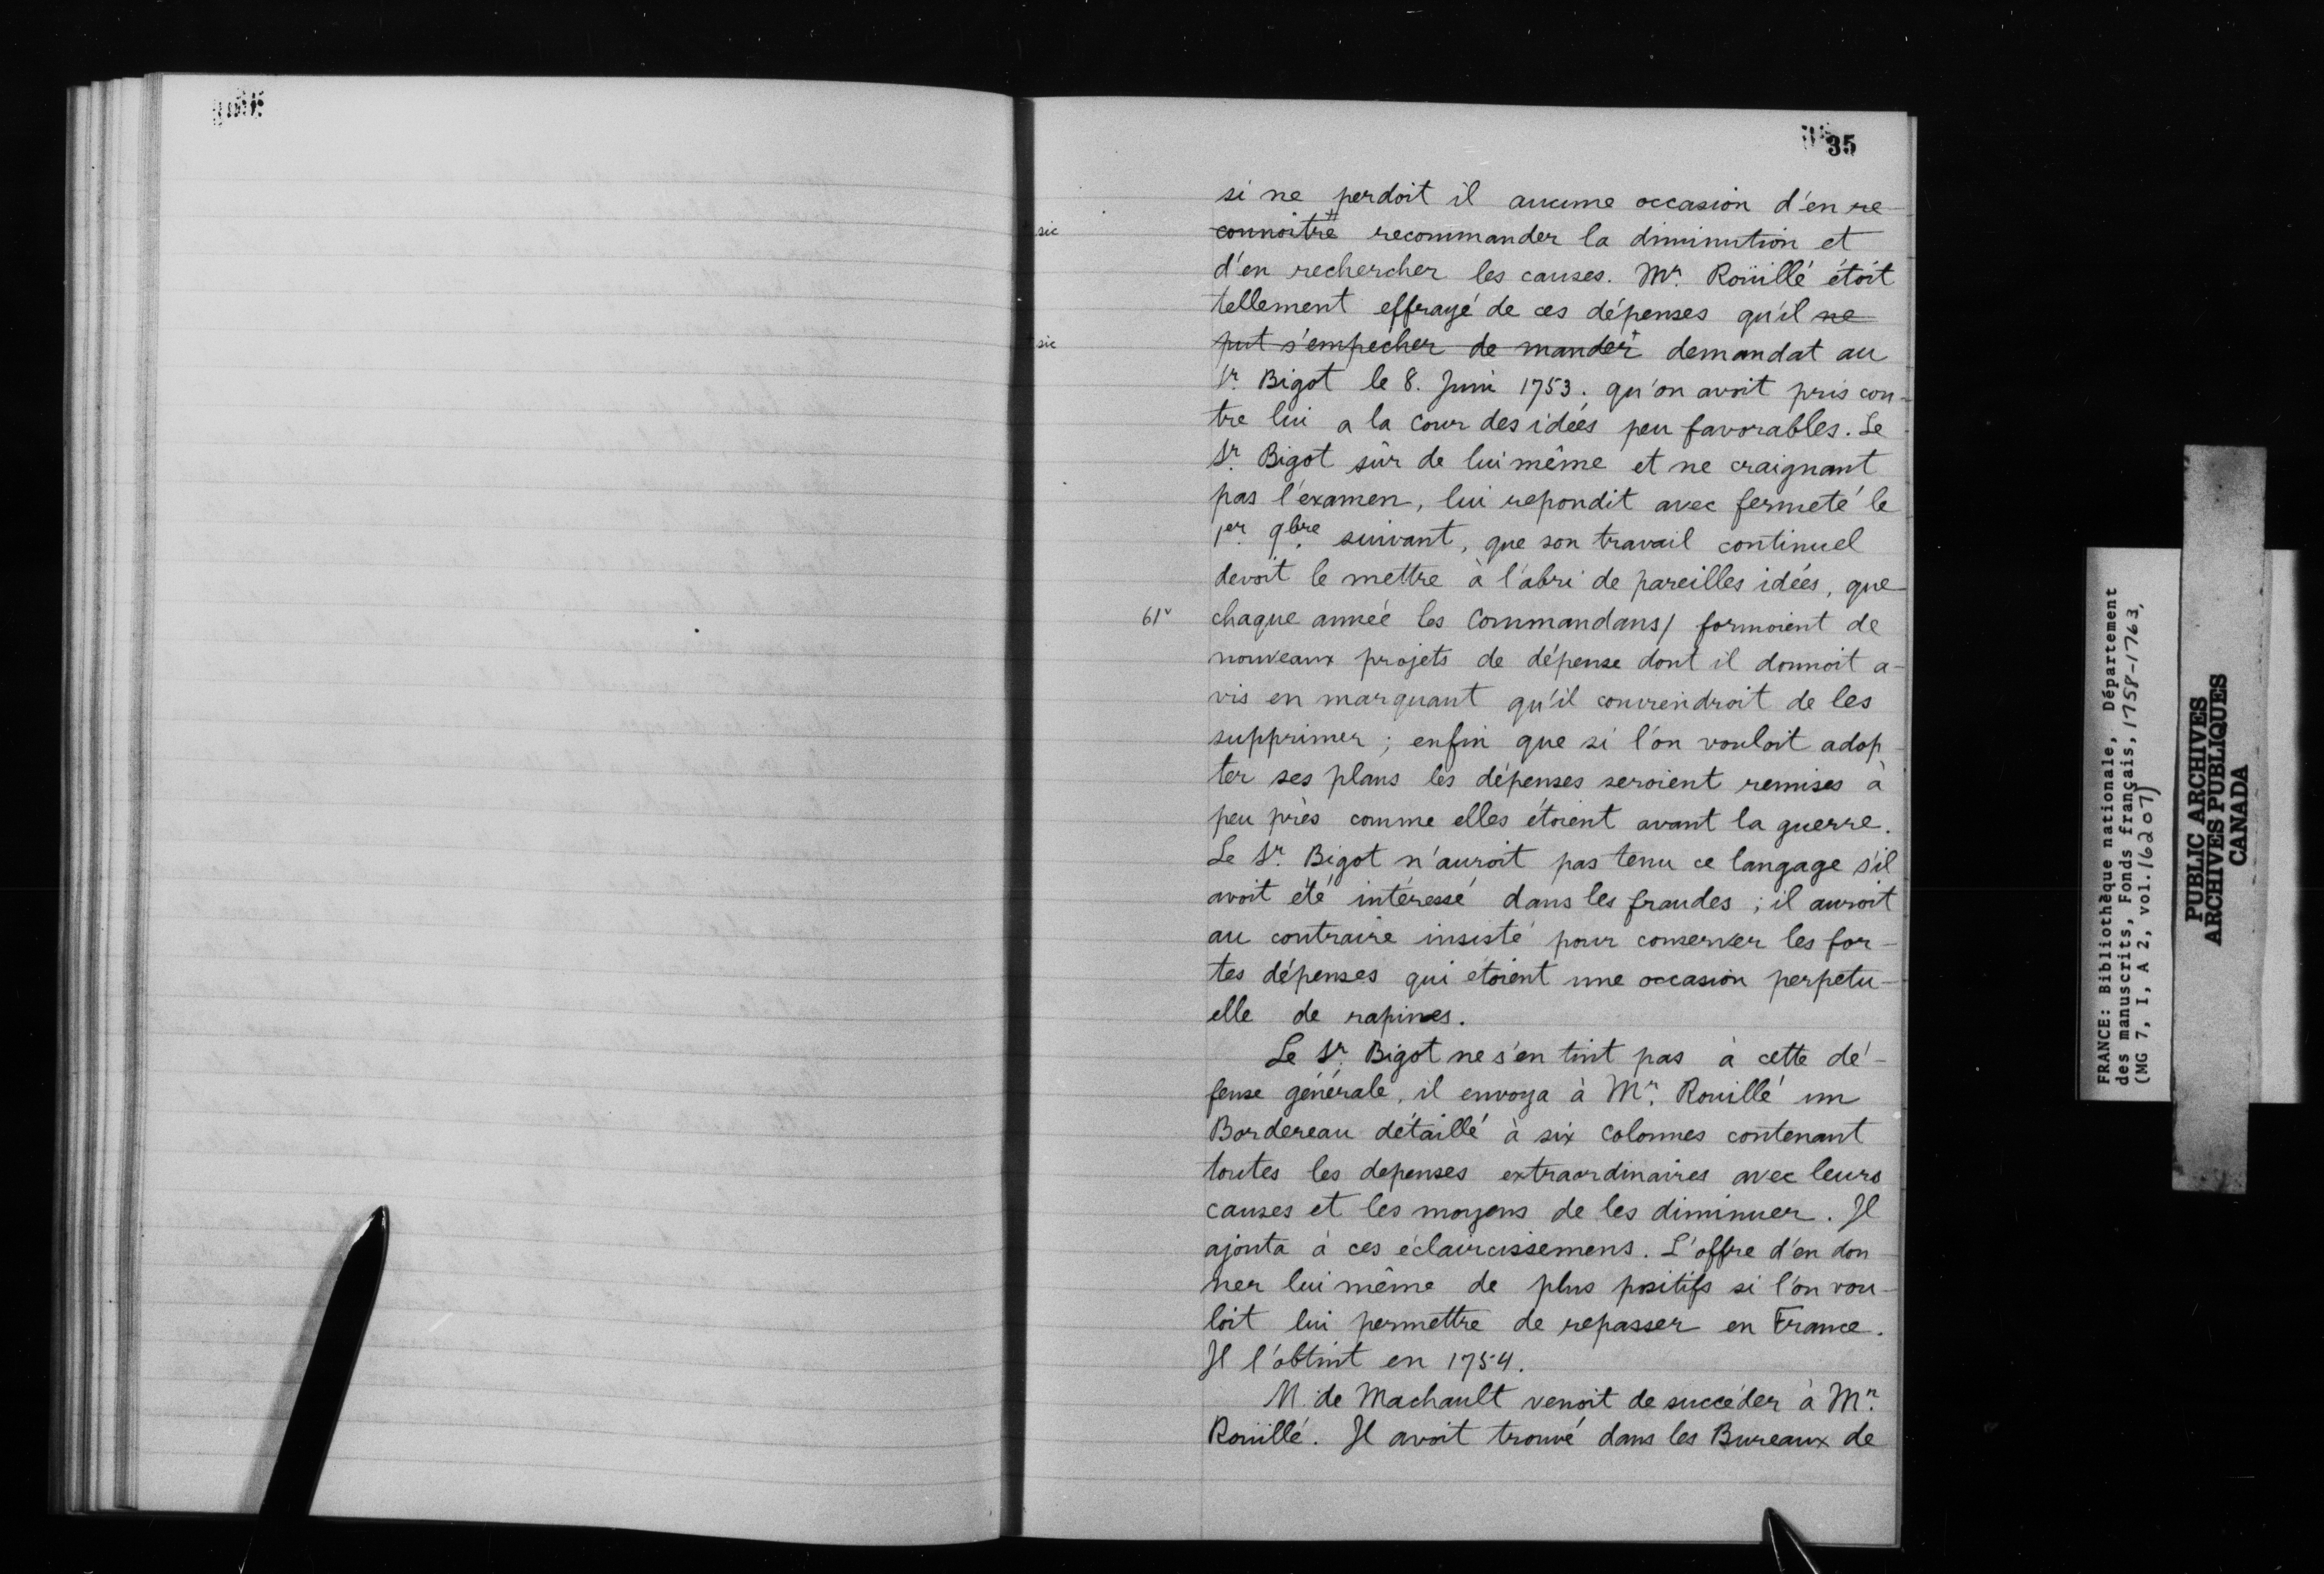 35
si ne perdoit il aucune occasion d'en re-
sic connoitre recommander la diminution et
d'en rechercher les causes. Mr. Roüillé étoit
tellement effrayé de ces dépenses qu'il ne
sic put s'empecher de mander demandat au
Sr. Bigot le 8. Juin 1753. qu'on avoit pris con-
tre lui a la Cour des idées peu favorables. Le
Sr. Bigot sûr de lui même et ne craignant
pas l'examen, lui repondit avec fermeté le
1er. 9bre. suivant, que son travail continuel
devoit le mettre à l'abri de pareilles idées, que
61v chaque année les Commandans/ formoient de
nouveaux projets de dépense dont il donnoit a-
vis en marquant qu'il conviendroit de les
supprimer ; enfin que si l'on vouloit adop-
ter ses plans les dépenses seroient remises à
peu près comme elles étoient avant la guerre.
Le Sr. Bigot n'auroit pas tenu ce langage s'il
avoit été intéressé dans les fraudes ; il auroit
au contraire insisté pour conserver les for-
tes dépenses qui étoient une occasion perpetu-
elle de rapines.
Le Sr. Bigot ne s'en tint pas à cette dé-
fense générale, il envoya à Mr. Rouillé un
Bordereau détaillé à six colonnes contenant
toutes les depenses extraordinaires avec leurs
causes et les moyens de les diminuer. Il
ajouta à ces éclaircissemens. L'offre d'en don
ner lui même de plus positifs si l'on vou-
loit lui permettre de repasser en France.
Il l'obtint en 1754.
M. de Machault venoit de succéder à Mr.
Roüillé. Il avoit trouvé dans les Bureaux de
FRANCE: Bibliothèque nationale, Département
des manuscrits, Fonds français, 1758-1763,
(MG 7, I, A 2, vol. 16207)
PUBLIC ARCHIVES
ARCHIVES PUBLIQUES
CANADA